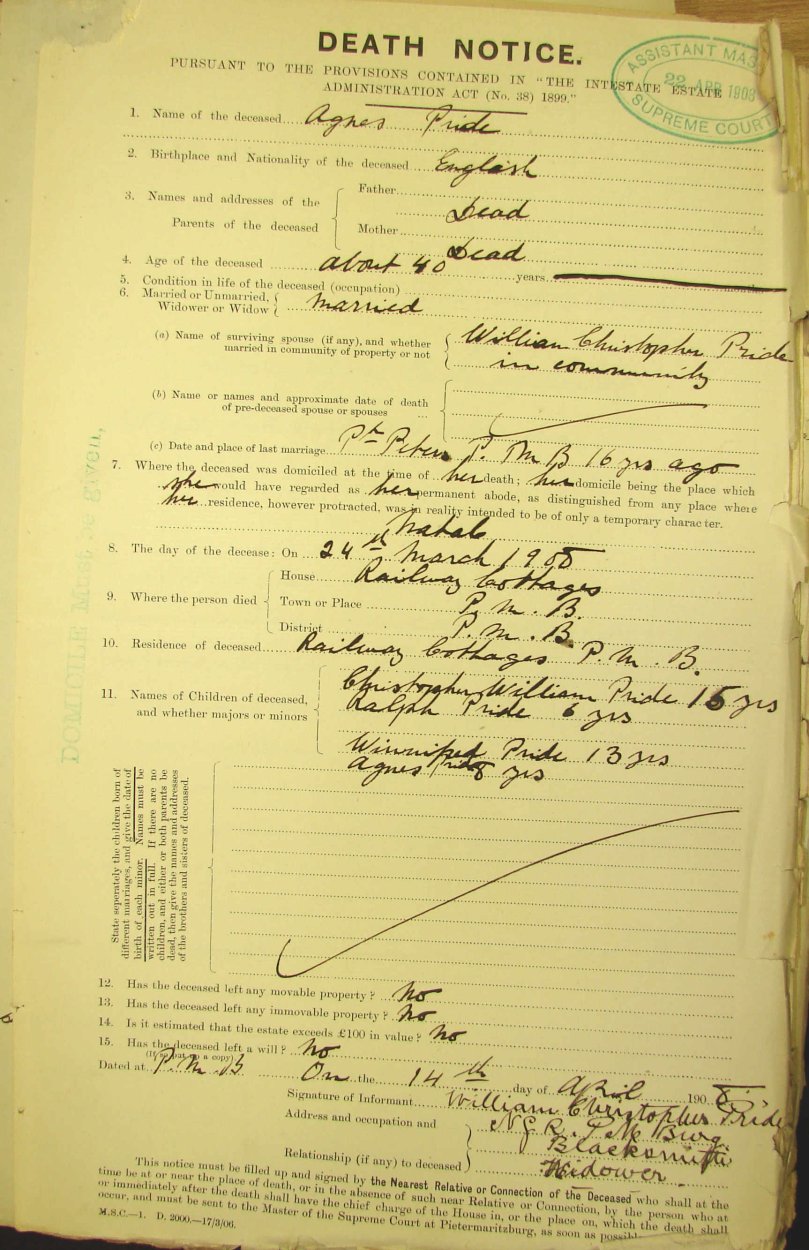 DEATH NOTICE.
PURSUANT TO THE PROVISIONS CONTAINED IN "THE INTESTATE ESTATE
ADMINISTRATION ACT (No. 38) 1899."
ASSISTANT MAS
22 APR 1908
SUPREME COURT
1. Name of the deceased Agnes Pride
2. Birthplace and Nationality of the deceased English
3. Names and addresses of the Parents of the deceased
Father Dead
Mother Dead
4. Age of the deceased about 40 years months
5. Condition in life of the deceased (occupation)
6. Married or Unmarried, Widower or Widow Married
(a) Name of surviving spouse (if any), and whether married in community of property or not
William Christopher Pride
in community
(b) Name or names and approximate date of death of pre-deceased spouse or spouses
(c) Date and place of last marriage Peters P. M B 16 yrs ago
7. Where the deceased was domiciled at the time of her death; her domicile being the place which
she would have regarded as her permanent abode, as distinguished from any place where
her residence, however protracted, was in reality intended to be of only a temporary character.
Natal
8. The day of the decease: On 24th March 1908
9. Where the person died
House Railway Cottages
Town or Place P. M. B.
District P. M. B.
10. Residence of deceased Railway Cottages P. M. B.
11. Names of Children of deceased, and whether majors or minors
Christopher William Pride 15 yrs
Ralph Pride 6 yrs
Winnifred Pride 13 yrs
Agnes Pride 8 yrs
State seperately the children born of
different marriages, and give the date of
birth of each minor. Names must be
written out in full. If there are no
children, and either or both parents be
dead, then give the names and addresses
of the brothers and sisters of deceased.
12. Has the deceased left any movable property? No
13. Has the deceased left any immovable property? No
14. Is it estimated that the estate exceeds £100 in value? No
15. Has the deceased left a will? No
Dated at P. M. B On the 14th day of April 1908.
Signature of Informant William Christopher Pride
Address and occupation and N G R. P M Burg
Blacksmith
Relationship (if any) to deceased Widower.
This notice must be filled up and signed by the Nearest Relative or Connection of the Deceased who shall at the
time be at or near the place of death, or in the absence of such near Relative or Connection, by the person who at
or immediately after the death shall have the chief charge of the House in, or the place on, which the death shall
occur, and must be sent to the Master of the Supreme Court at Pietermaritzburg, as soon as possible
M.S.C.—1. D. 2000.—17/3/06.